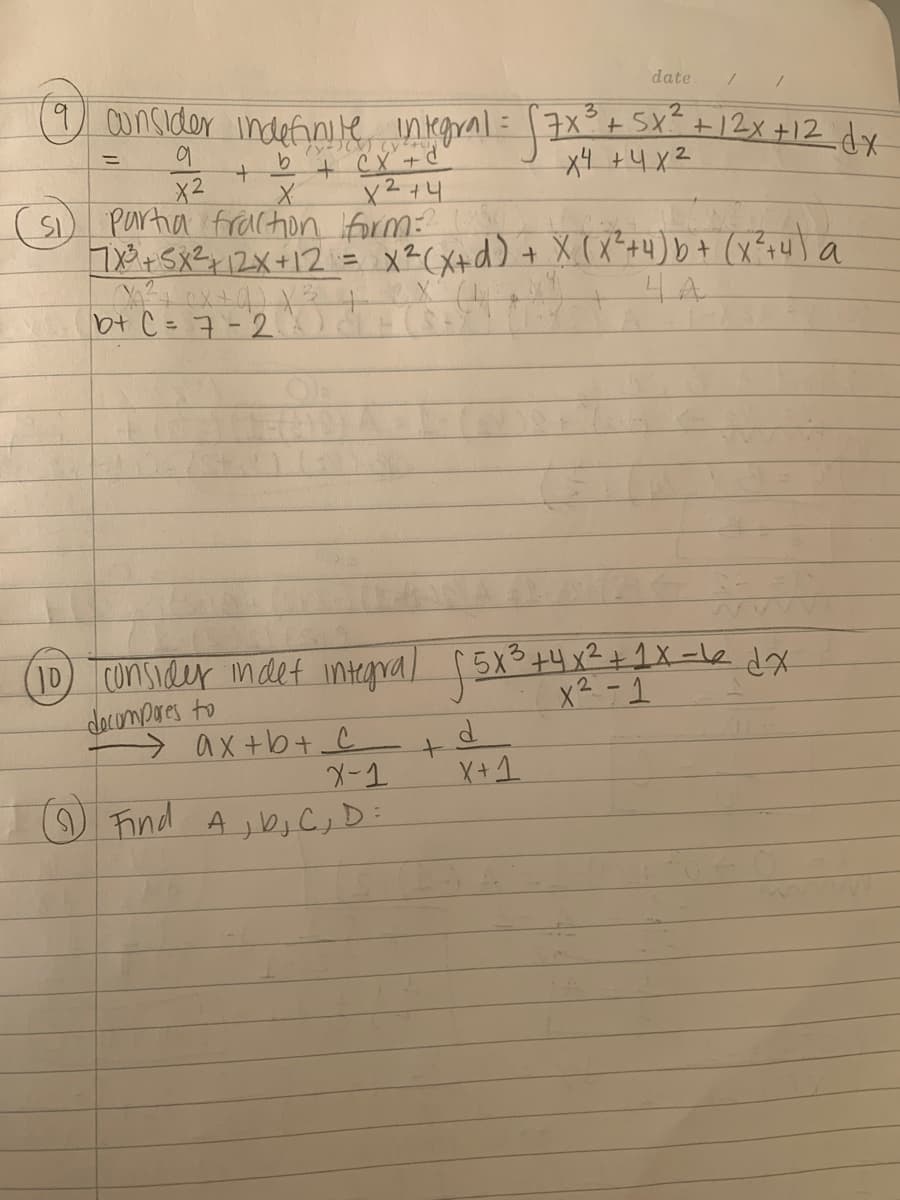 date / /
9 consider indefinite integral = ∫ 7x³ + 5x² + 12x + 12 / x⁴ + 4x² dx
= a/x² + b/x + cx + d / x² + 4
S1 partia fraction form:
7x³ + 5x² + 12x + 12 = x²(x+d) + x(x²+4)b + (x²+4)a
4A
b + C = 7 - 2
10 consider indef integral ∫ 5x³ + 4x² + 1x - 6 / x² - 1 dx
decompores to
→ ax + b + c / x-1 + d / x+1
Find A, b, C, D: